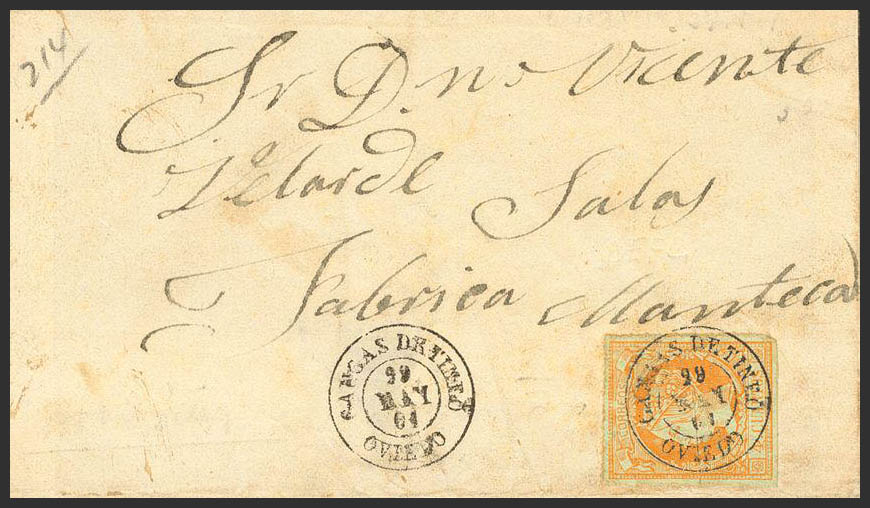 214
Sr D.n Vicente
Velarde Salas
Fabrica Manteca
CANGAS DE TINEO
29
MAY
61
OVIEDO
CANGAS DE TINEO
29
MAY
61
OVIEDO